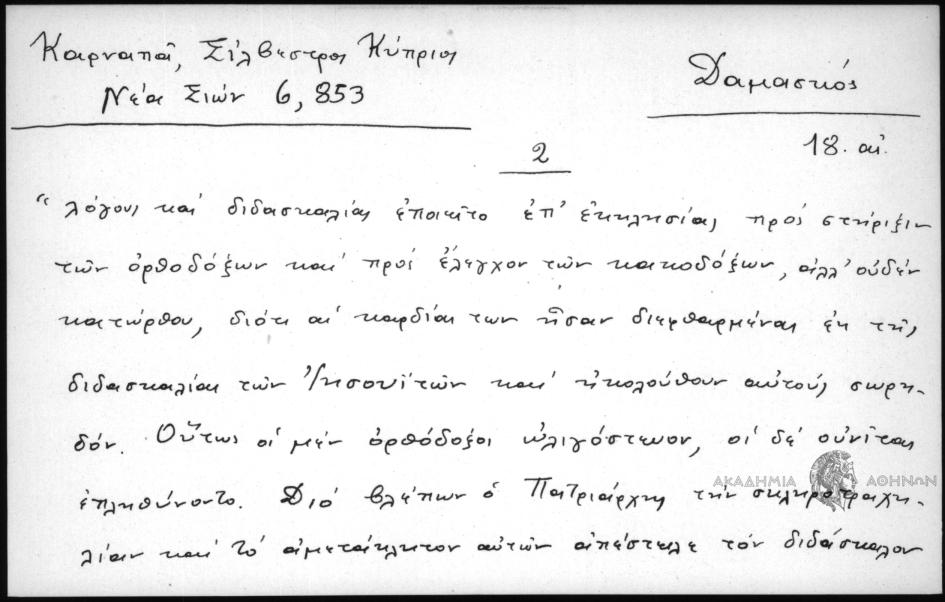 Καρναπᾶ, Σίλβεστρος Κύπριος
Νέα Σιών 6, 853
Δαμασκός
18. αἰ.
2
"λόγους καὶ διδασκαλίας ἐποιεῖτο ἐπ' ἐκκλησίας πρὸς στήριξιν
τῶν ὀρθοδόξων καὶ πρὸς ἔλεγχον τῶν κακοδόξων, ἀλλ' οὐδὲν
κατώρθου, διότι αἱ καρδίαι των ἦσαν διεφθαρμέναι ἐκ τῆς
διδασκαλίας τῶν Ἰησουϊτῶν καὶ ἠκολούθουν αὐτοὺς σωρη-
δόν. Οὕτως οἱ μὲν ὀρθόδοξοι ὠλιγόστευον, οἱ δὲ οὐνῖται
ἐπληθύνοντο. Διὸ βλέπων ὁ Πατριάρχης τὴν σκληροτραχη-
λίαν καὶ τὸ ἀμετάκλητον αὐτῶν ἀπέστειλε τὸν διδάσκαλον
ΑΚΑΔΗΜΙΑ ΑΘΗΝΩΝ